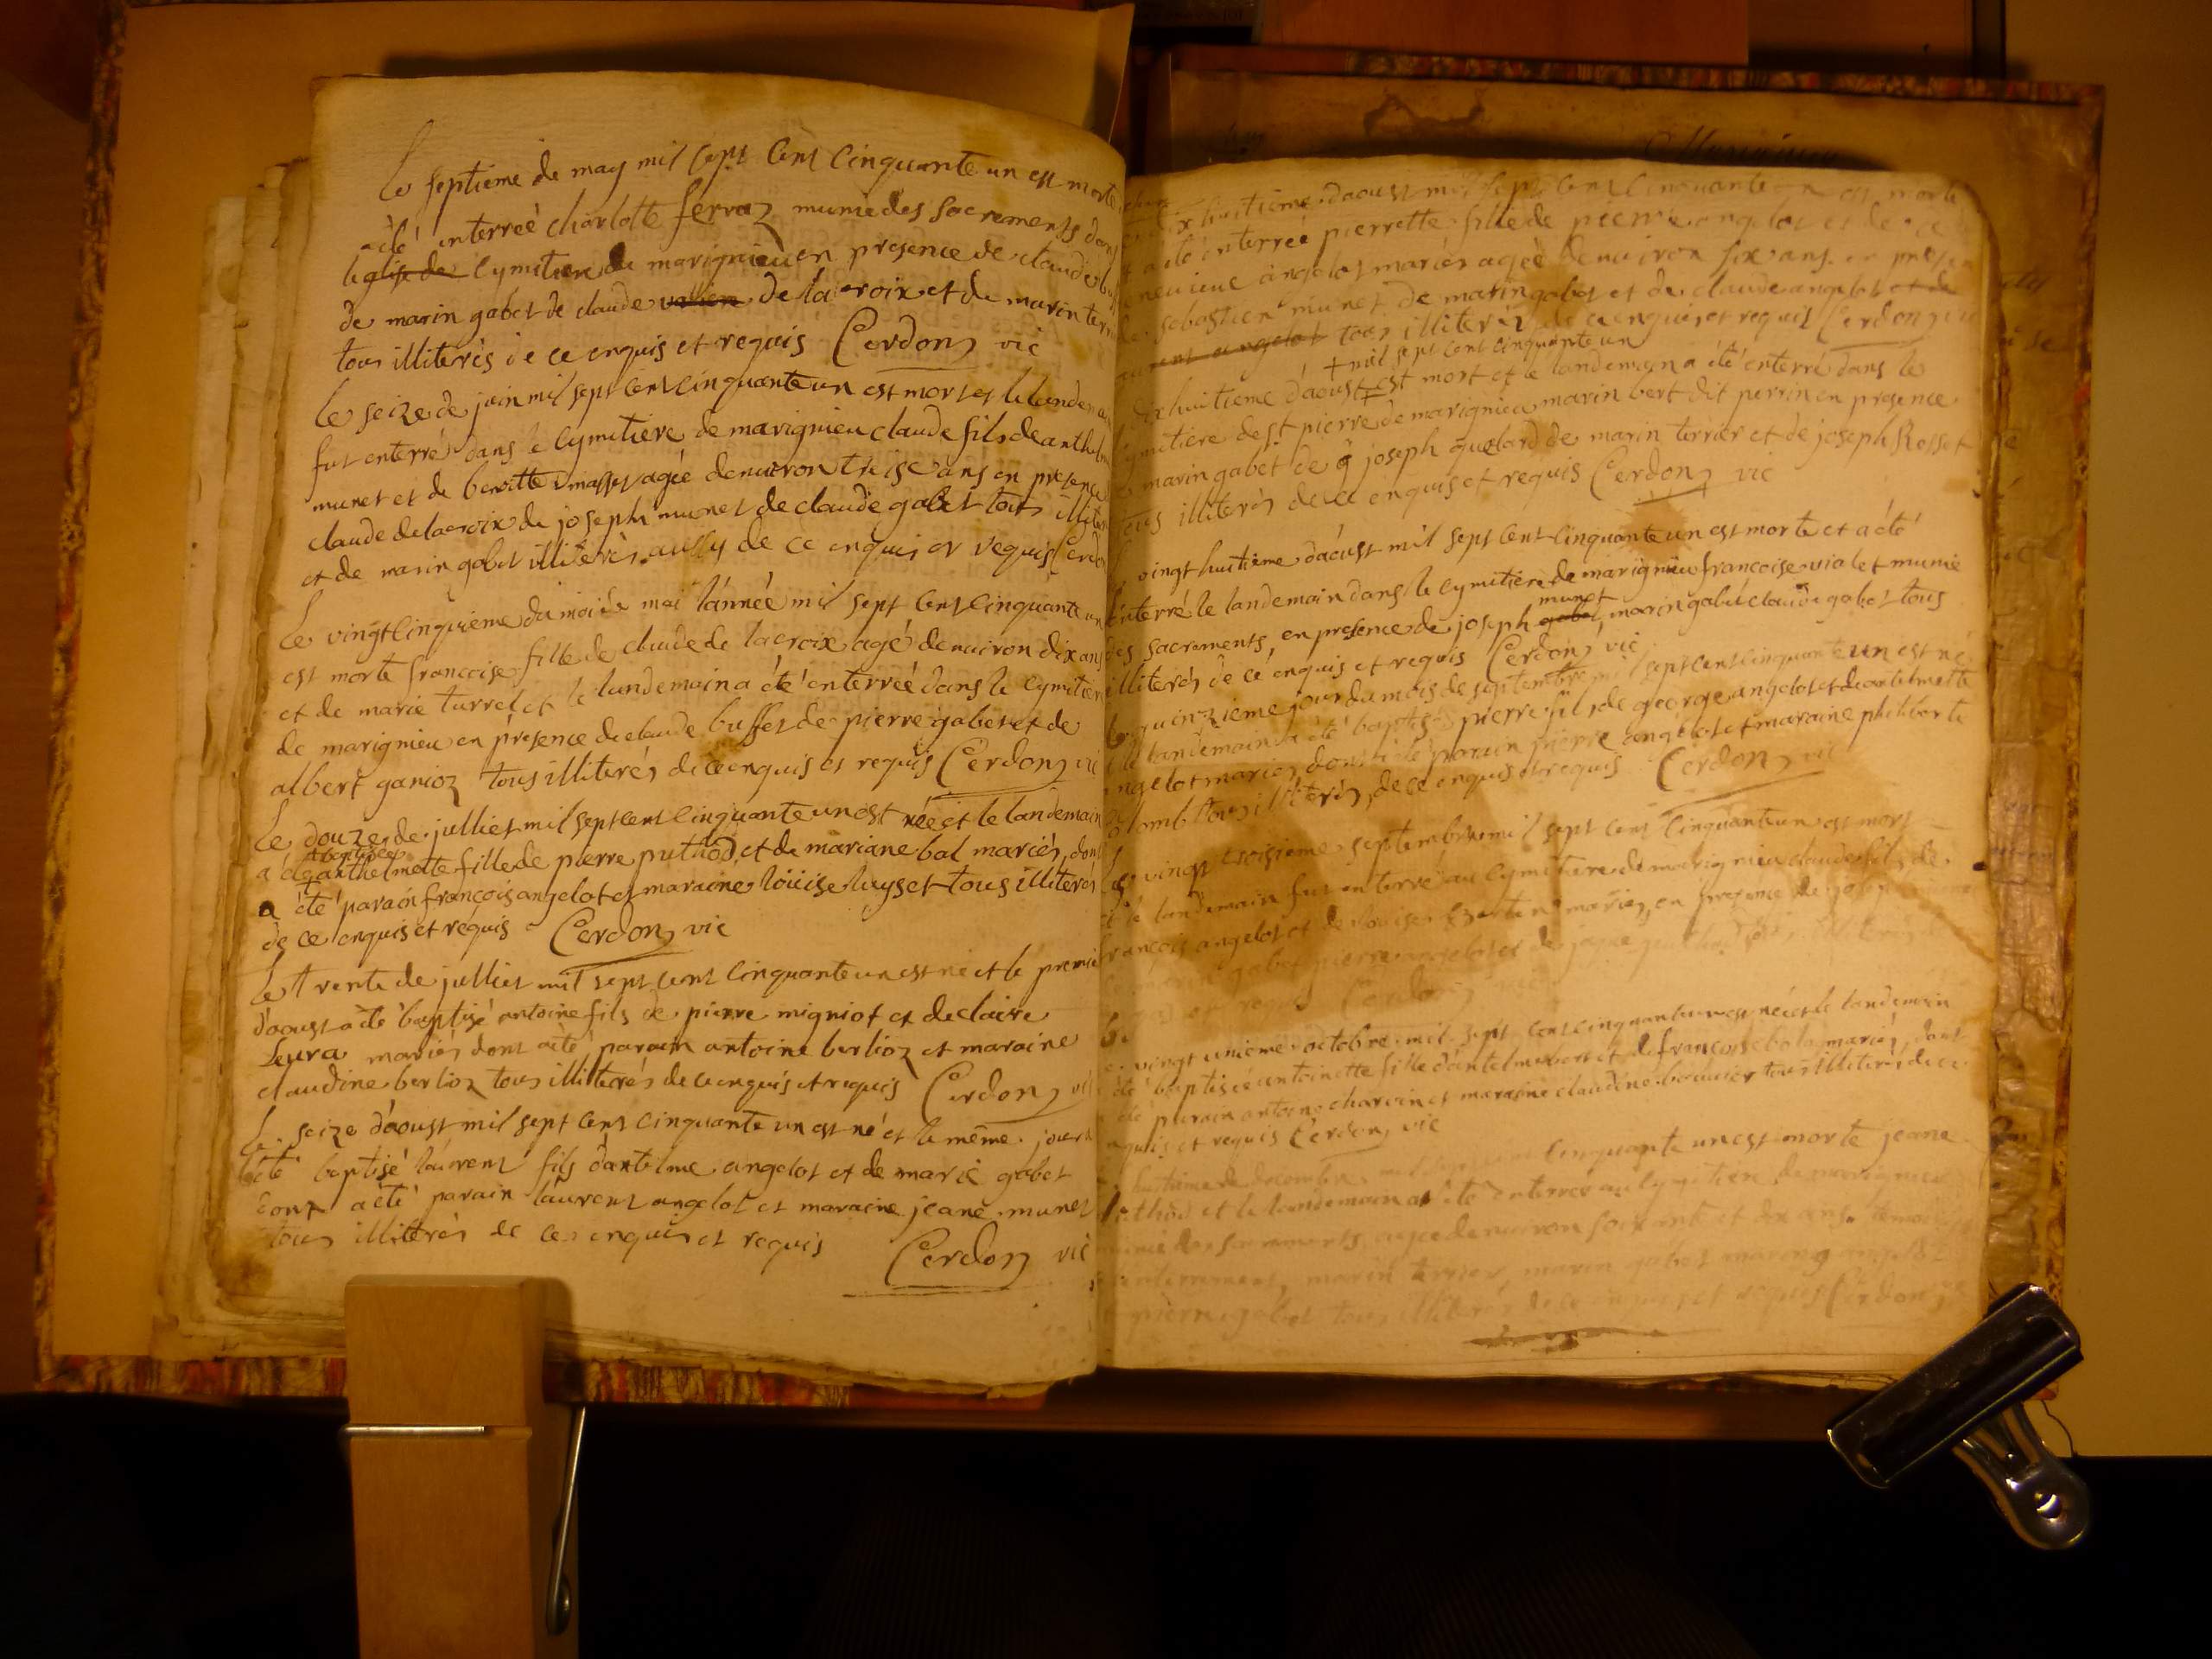 Le septieme de may mil sept cent cinquante un est morte
a été enterreé charlotte ferraz munie des sacrements dans
leglise de cymitiere de marignieu en presence de claude
de marin gabet de claude de la croix et de marin
tous illiterés de ce enquis et requis Cerdon vic
le seize de juin mil sept cent cinquante un est mort et le landemain
fut enterré dans le cymitiere de marignieu claude fils de anthelme
munet et de benoitte masset agée denviron treise ans en presence
claude delacroix de joseph munet de claude gabet tous
et de marin gabet illiterés aussy de ce enquis et requis
Le vingt cinquieme du mois de mai lánnée mil sept cent cinquante un
est morte francoise fille de claude de lacroix agé denviron dix ans
et de marie turrel et le landemain a été enterreé dans le cymitiere
de marignieu en présence de claude buffet de pierre gabet et de
albert ganioz tous illiterés de ce enquis et requis Cerdon vic
Le douze de julliet mil sept cent cinquante un est née et le landemain
baptisée
a été anthelmette fille de pierre puthod et de mariane bal mariés, dont
a été parain françois angelot et maraine loüise luyset tous illiterés
de ce enquis et requis Cerdon vic
Le trente de julliet mil sept cent cinquante un est né et le premier
d'aoust a été baptisé antoine fils de pierre migniot et de claire
Leura mariés dont a été parain antoine berlioz et maraine
claudine berlioz tous illiterés de ce enquis et requis Cerdon vic
Le seize d'aoust mil sept cent cinquante un est né et le même jour
été baptisé laurent fils d'antelme angelot et de marie gabet
dont a été parain laurent angelot et maraine jeane munet
tous illiterés de ce enquis et requis Cerdon vic
dix huitieme daoust mil sept cent cinquante un est morte
a été enterreé pierrette fille de pierre angelot et de
angelot mariés agée denviron six ans en presence
de sebastien munet de marin gabet et de claude angelot et de
angelot tous illiterés de ce enquis et requis Cerdon vic
+ mil sept cent cinquante un
dixhuitieme d'aoust + est mort et le landemain a été enterré dans le
cymitiere de st pierre de marignieu marin bert dit perrin en presence
marin gabet de joseph quelard de marin terrier et de joseph Rosset
tous illiterés de ce enquis et requis Cerdon vic
vingt huitieme d'aoust mil sept cent cinquante un est morte et a été
enterré le landemain dans le cymitiere de marignieu francoise vialet munie
munet
des sacrements, en presence de joseph gabet, marin gabet claude gabet tous
illiterés de ce enquis et requis Cerdon vic
Le quinzieme jour du mois de septembre mil sept cent cinquante un est né
et le landemain a été baptisé pierre fils de george angelot et de antelmette
angelot mariés, dont a été parain pierre angelot et maraine philiberte
colomb tous illiterés, de ce enquis et requis Cerdon vic
Le vingt troisieme septembre mil sept cent cinquante un est mort
et le landemain fut enterré au cymitiere de marignieu claude fils de
francois angelot et de loüise mariés, en presence de joseph
marin gabet pierre angelot et de
et requis Cerdon vic
Le vingt unieme octobre mil sept cent cinquante un est née et le landemain
été baptisée antoinette fille d'antelme bert et de françoise bal mariés, dont
été parain antoine charvin et maraine claudine tous illiterés de ce
enquis et requis Cerdon vic
huitieme de decembre mil sept cent cinquante un est morte jeane
puthod et le landemain a été enterrée au cymitiere de marignieu
munie des sacrements agée denviron soixante et dix ans temoins
enterrement, marin terrier, marin gabet angelot
pierre gabet tous illiterés de ce enquis et requis Cerdon vic